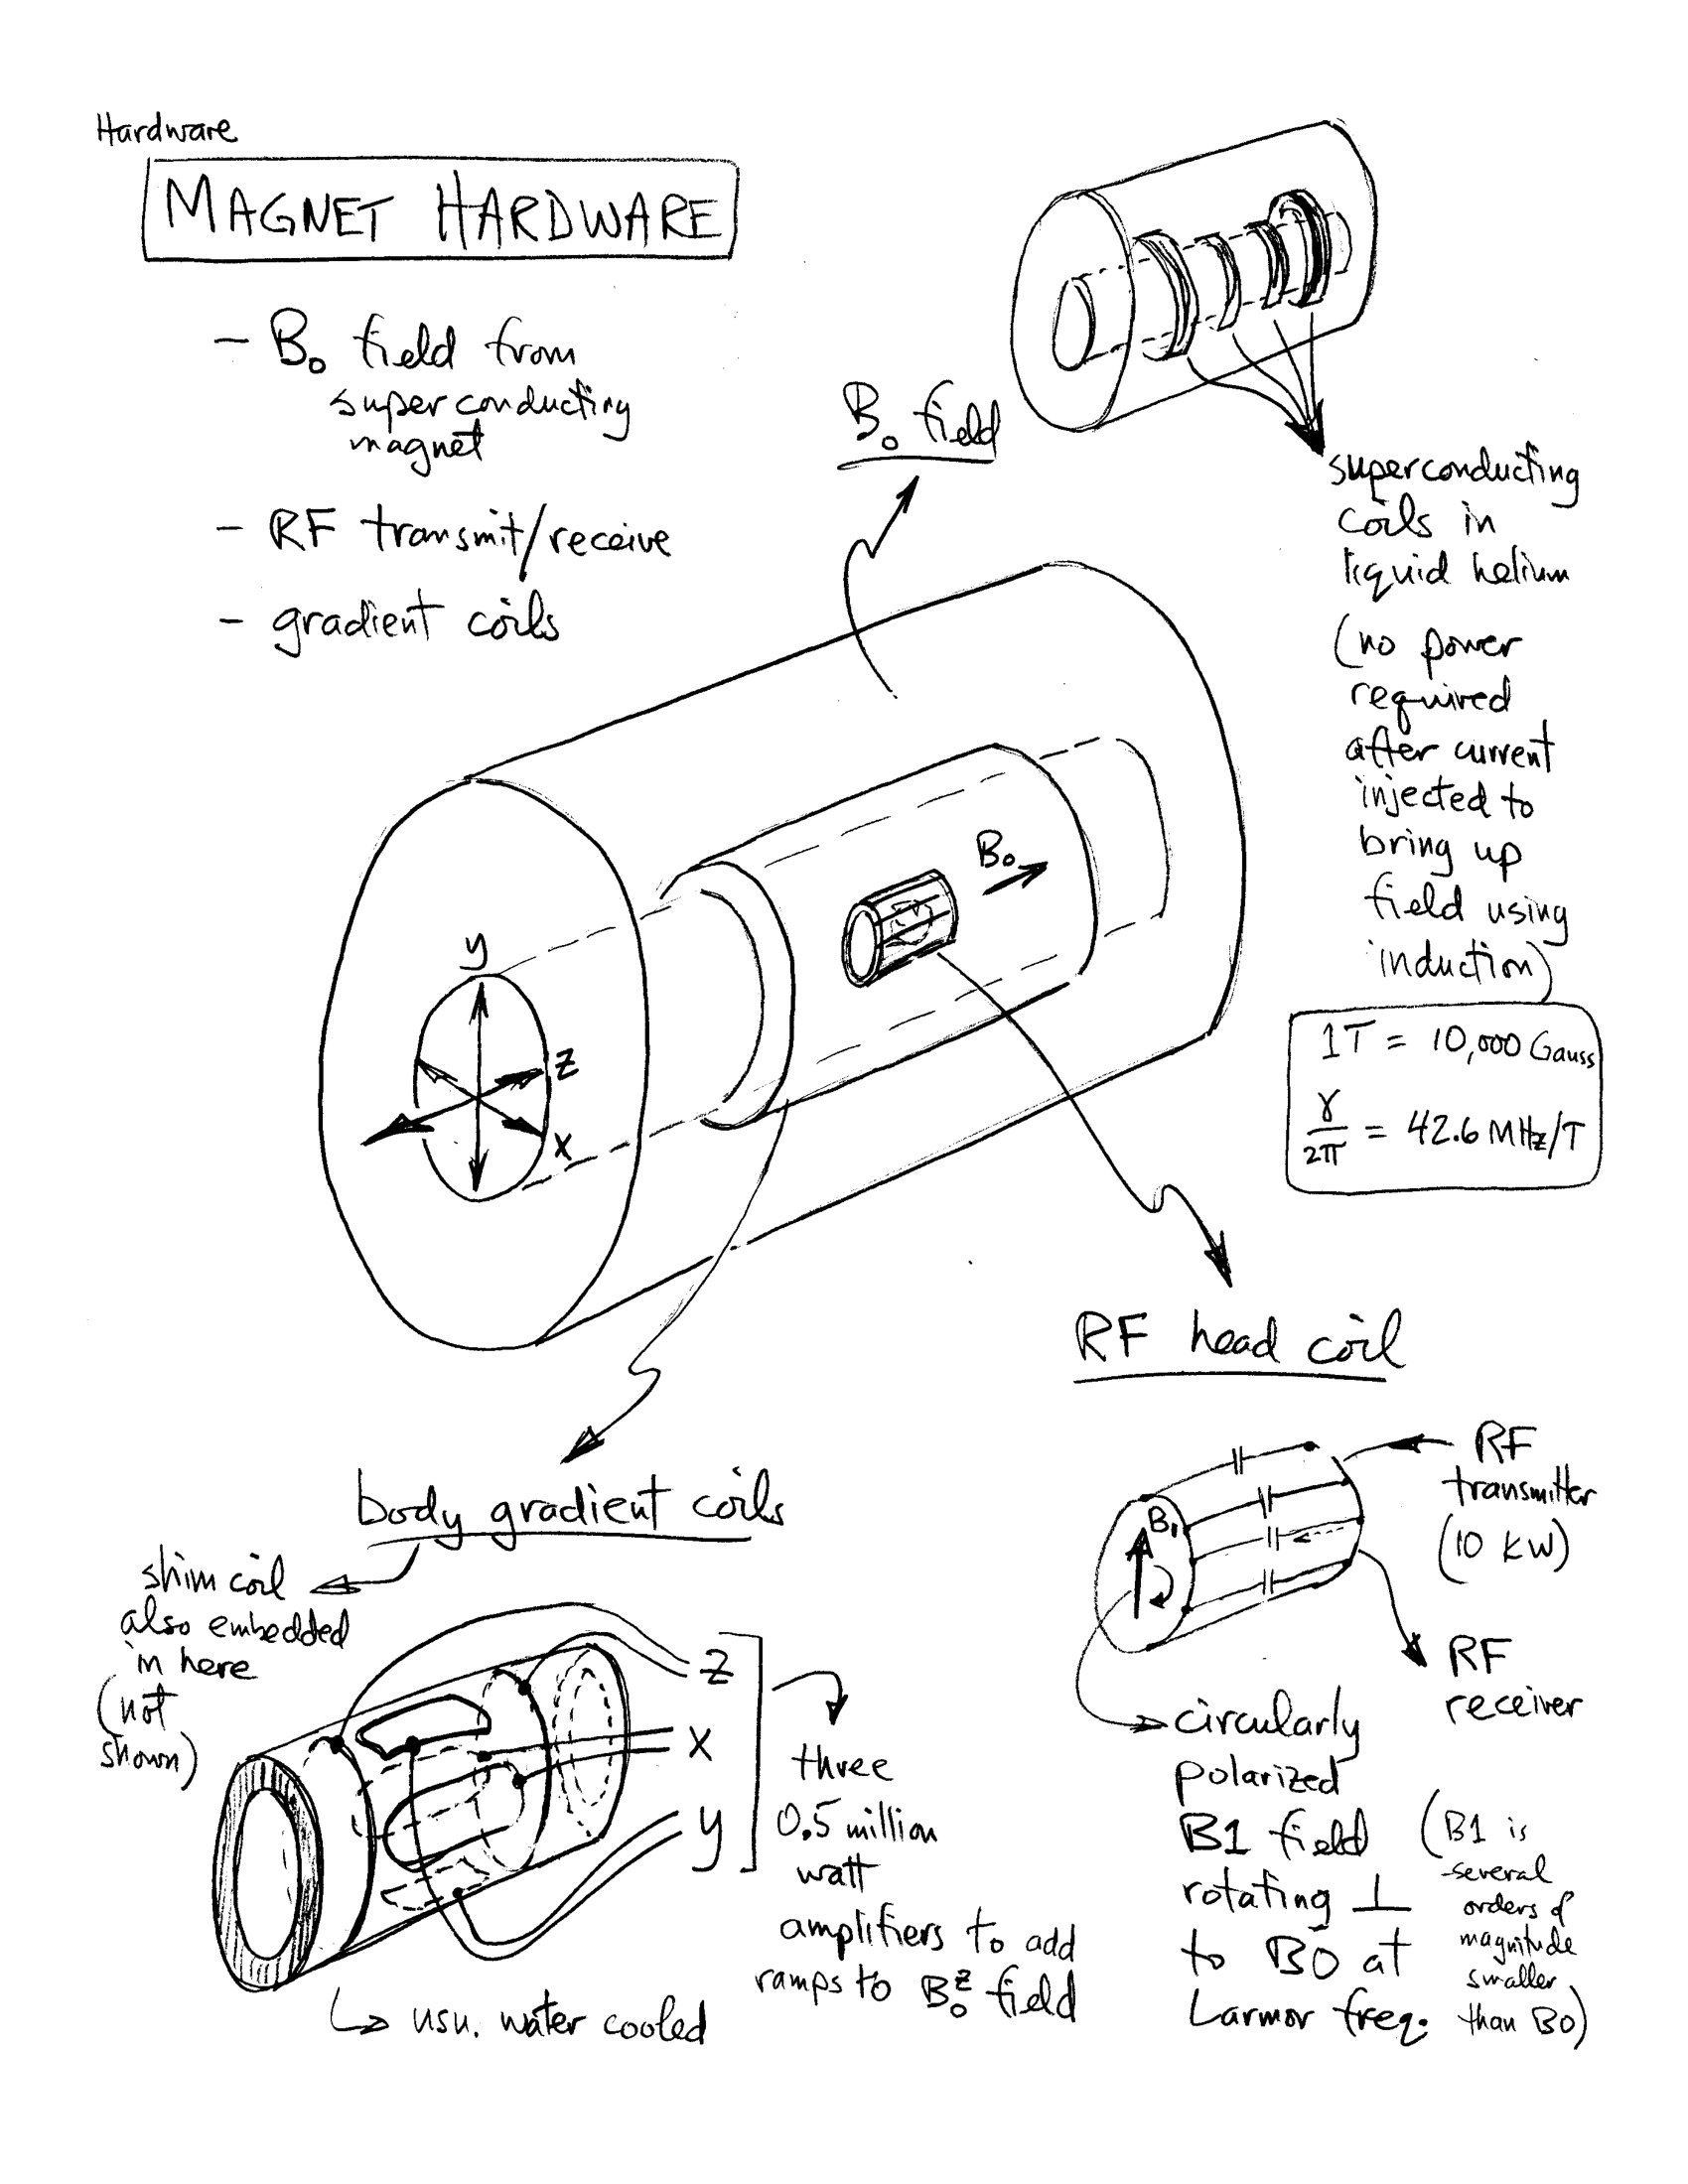 Hardware
MAGNET HARDWARE
- B₀ field from
superconducting
magnet
- RF transmit/receive
- gradient coils
B₀ field
superconducting
coils in
liquid helium
(no power
required
after current
injected to
bring up
field using
induction)
1T = 10,000 Gauss
γ/2π = 42.6 MHz/T
B₀
y
z
x
RF head coil
RF
transmitter
(10 KW)
B₁
RF
receiver
circularly
polarized
B1 field
rotating ⊥
to B0 at
Larmor freq.
(B1 is
several
orders of
magnitude
smaller
than B0)
body gradient coils
shim coil
also embedded
in here
(not
shown)
z
x
y
three
0.5 million
watt
amplifiers to add
ramps to B₀ᶻ field
↳ usu. water cooled